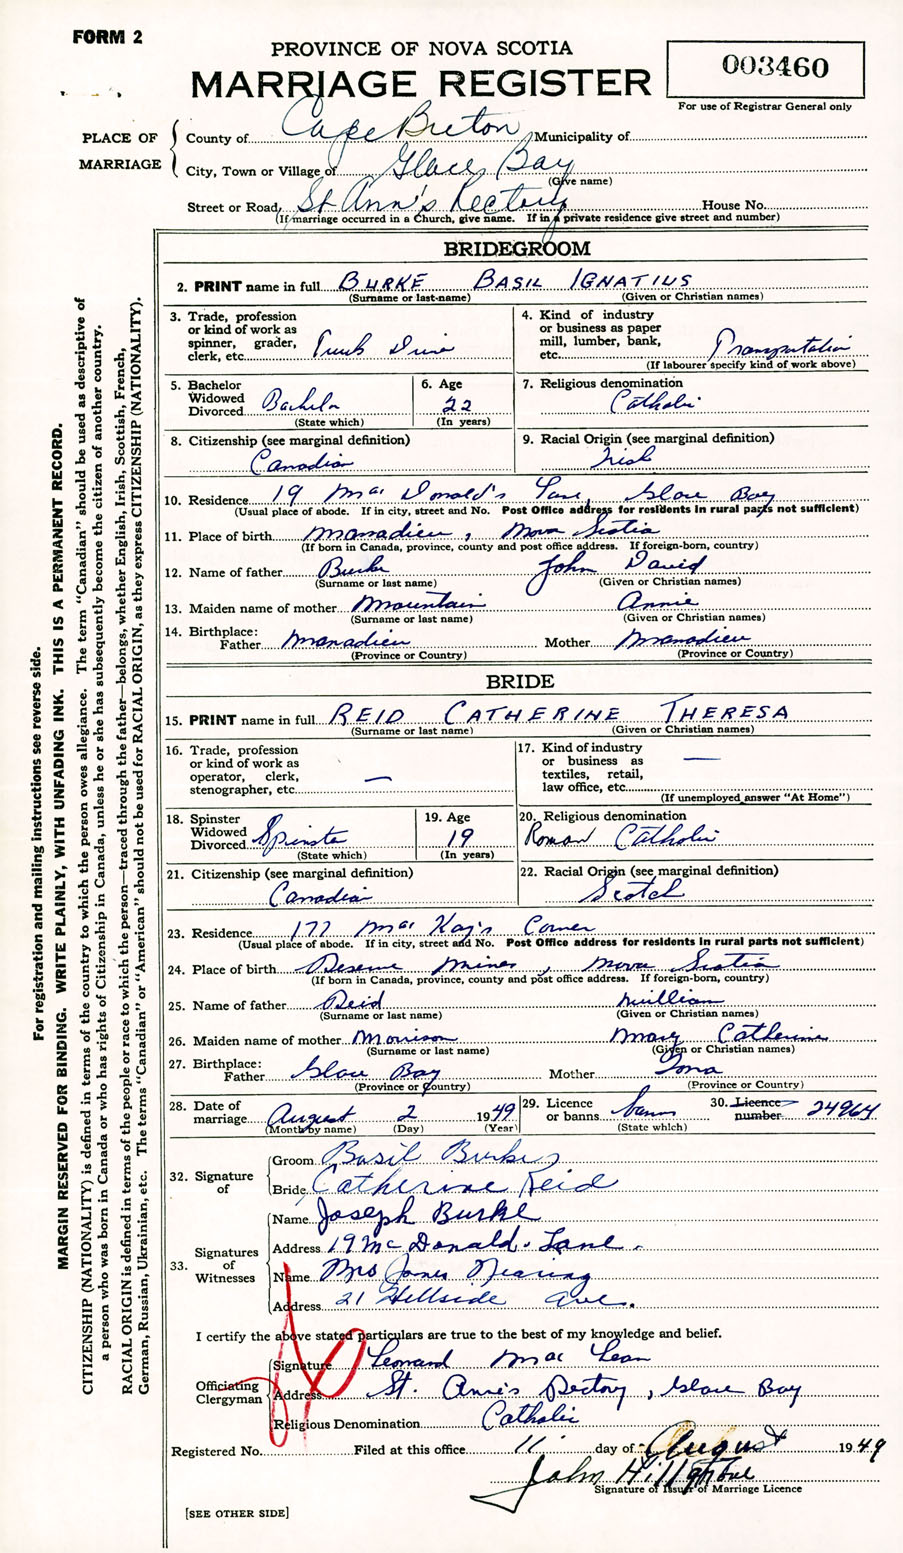 FORM 2
PROVINCE OF NOVA SCOTIA
MARRIAGE REGISTER
003460
For use of Registrar General only
PLACE OF MARRIAGE
County of Cape Breton Municipality of
City, Town or Village of Glace Bay
(Give name)
Street or Road St Ann's Rectory House No.
(If marriage occurred in a Church, give name. If in a private residence give street and number)
BRIDEGROOM
2. PRINT name in full BURKE BASIL IGNATIUS
(Surname or last-name) (Given or Christian names)
3. Trade, profession or kind of work as spinner, grader, clerk, etc. Truck Driver
4. Kind of industry or business as paper mill, lumber, bank, etc. Transportation
(If labourer specify kind of work above)
5. Bachelor Widowed Divorced Bachelor
(State which)
6. Age 22
(In years)
7. Religious denomination Catholic
8. Citizenship (see marginal definition) Canadian
9. Racial Origin (see marginal definition) Irish
10. Residence 19 MacDonald's Lane, Glace Bay
(Usual place of abode. If in city, street and No. Post Office address for residents in rural parts not sufficient)
11. Place of birth Manadieu, Nova Scotia
(If born in Canada, province, county and post office address. If foreign-born, country)
12. Name of father Burke John David
(Surname or last name) (Given or Christian names)
13. Maiden name of mother Mountain Annie
(Surname or last name) (Given or Christian names)
14. Birthplace: Father Manadieu Mother Manadieu
(Province or Country) (Province or Country)
BRIDE
15. PRINT name in full REID CATHERINE THERESA
(Surname or last name) (Given or Christian names)
16. Trade, profession or kind of work as operator, clerk, stenographer, etc. —
17. Kind of industry or business as textiles, retail, law office, etc. —
(If unemployed answer "At Home")
18. Spinster Widowed Divorced Spinster
(State which)
19. Age 19
(In years)
20. Religious denomination Roman Catholic
21. Citizenship (see marginal definition) Canadian
22. Racial Origin (see marginal definition) Scotch
23. Residence 177 MacKay's Corner
(Usual place of abode. If in city, street and No. Post Office address for residents in rural parts not sufficient)
24. Place of birth Reserve Mines, Nova Scotia
(If born in Canada, province, county and post office address. If foreign-born, country)
25. Name of father Reid William
(Surname or last name) (Given or Christian names)
26. Maiden name of mother Morrison Mary Catherine
(Surname or last name) (Given or Christian names)
27. Birthplace: Father Glace Bay Mother Iona
(Province or Country) (Province or Country)
28. Date of marriage August 2 1949
(Month by name) (Day) (Year)
29. Licence or banns banns
(State which)
30. Licence number 24964
32. Signature of
Groom Basil Burke
Bride Catherine Reid
33. Signatures of Witnesses
Name Joseph Burke
Address 19 McDonald. Lane.
Name Mrs James Nearing
Address 21 Hillside Ave.
I certify the above stated particulars are true to the best of my knowledge and belief.
Officiating Clergyman
Signature Leonard MacLean
Address St. Anne's Rectory, Glace Bay
Religious Denomination Catholic
Registered No. Filed at this office 11 day of August 1949
John Hillstone
Signature of Issuer of Marriage Licence
[SEE OTHER SIDE]
For registration and mailing instructions see reverse side.
MARGIN RESERVED FOR BINDING. WRITE PLAINLY, WITH UNFADING INK. THIS IS A PERMANENT RECORD.
CITIZENSHIP (NATIONALITY) is defined in terms of the country to which the person owes allegiance. The term "Canadian" should be used as descriptive of
a person who was born in Canada or who has rights of Citizenship in Canada, unless he or she has subsequently become the citizen of another country.
RACIAL ORIGIN is defined in terms of the people or race to which the person—traced through the father—belongs, whether English, Irish, Scottish, French,
German, Russian, Ukrainian, etc. The terms "Canadian" or "American" should not be used for RACIAL ORIGIN, as they express CITIZENSHIP (NATIONALITY).